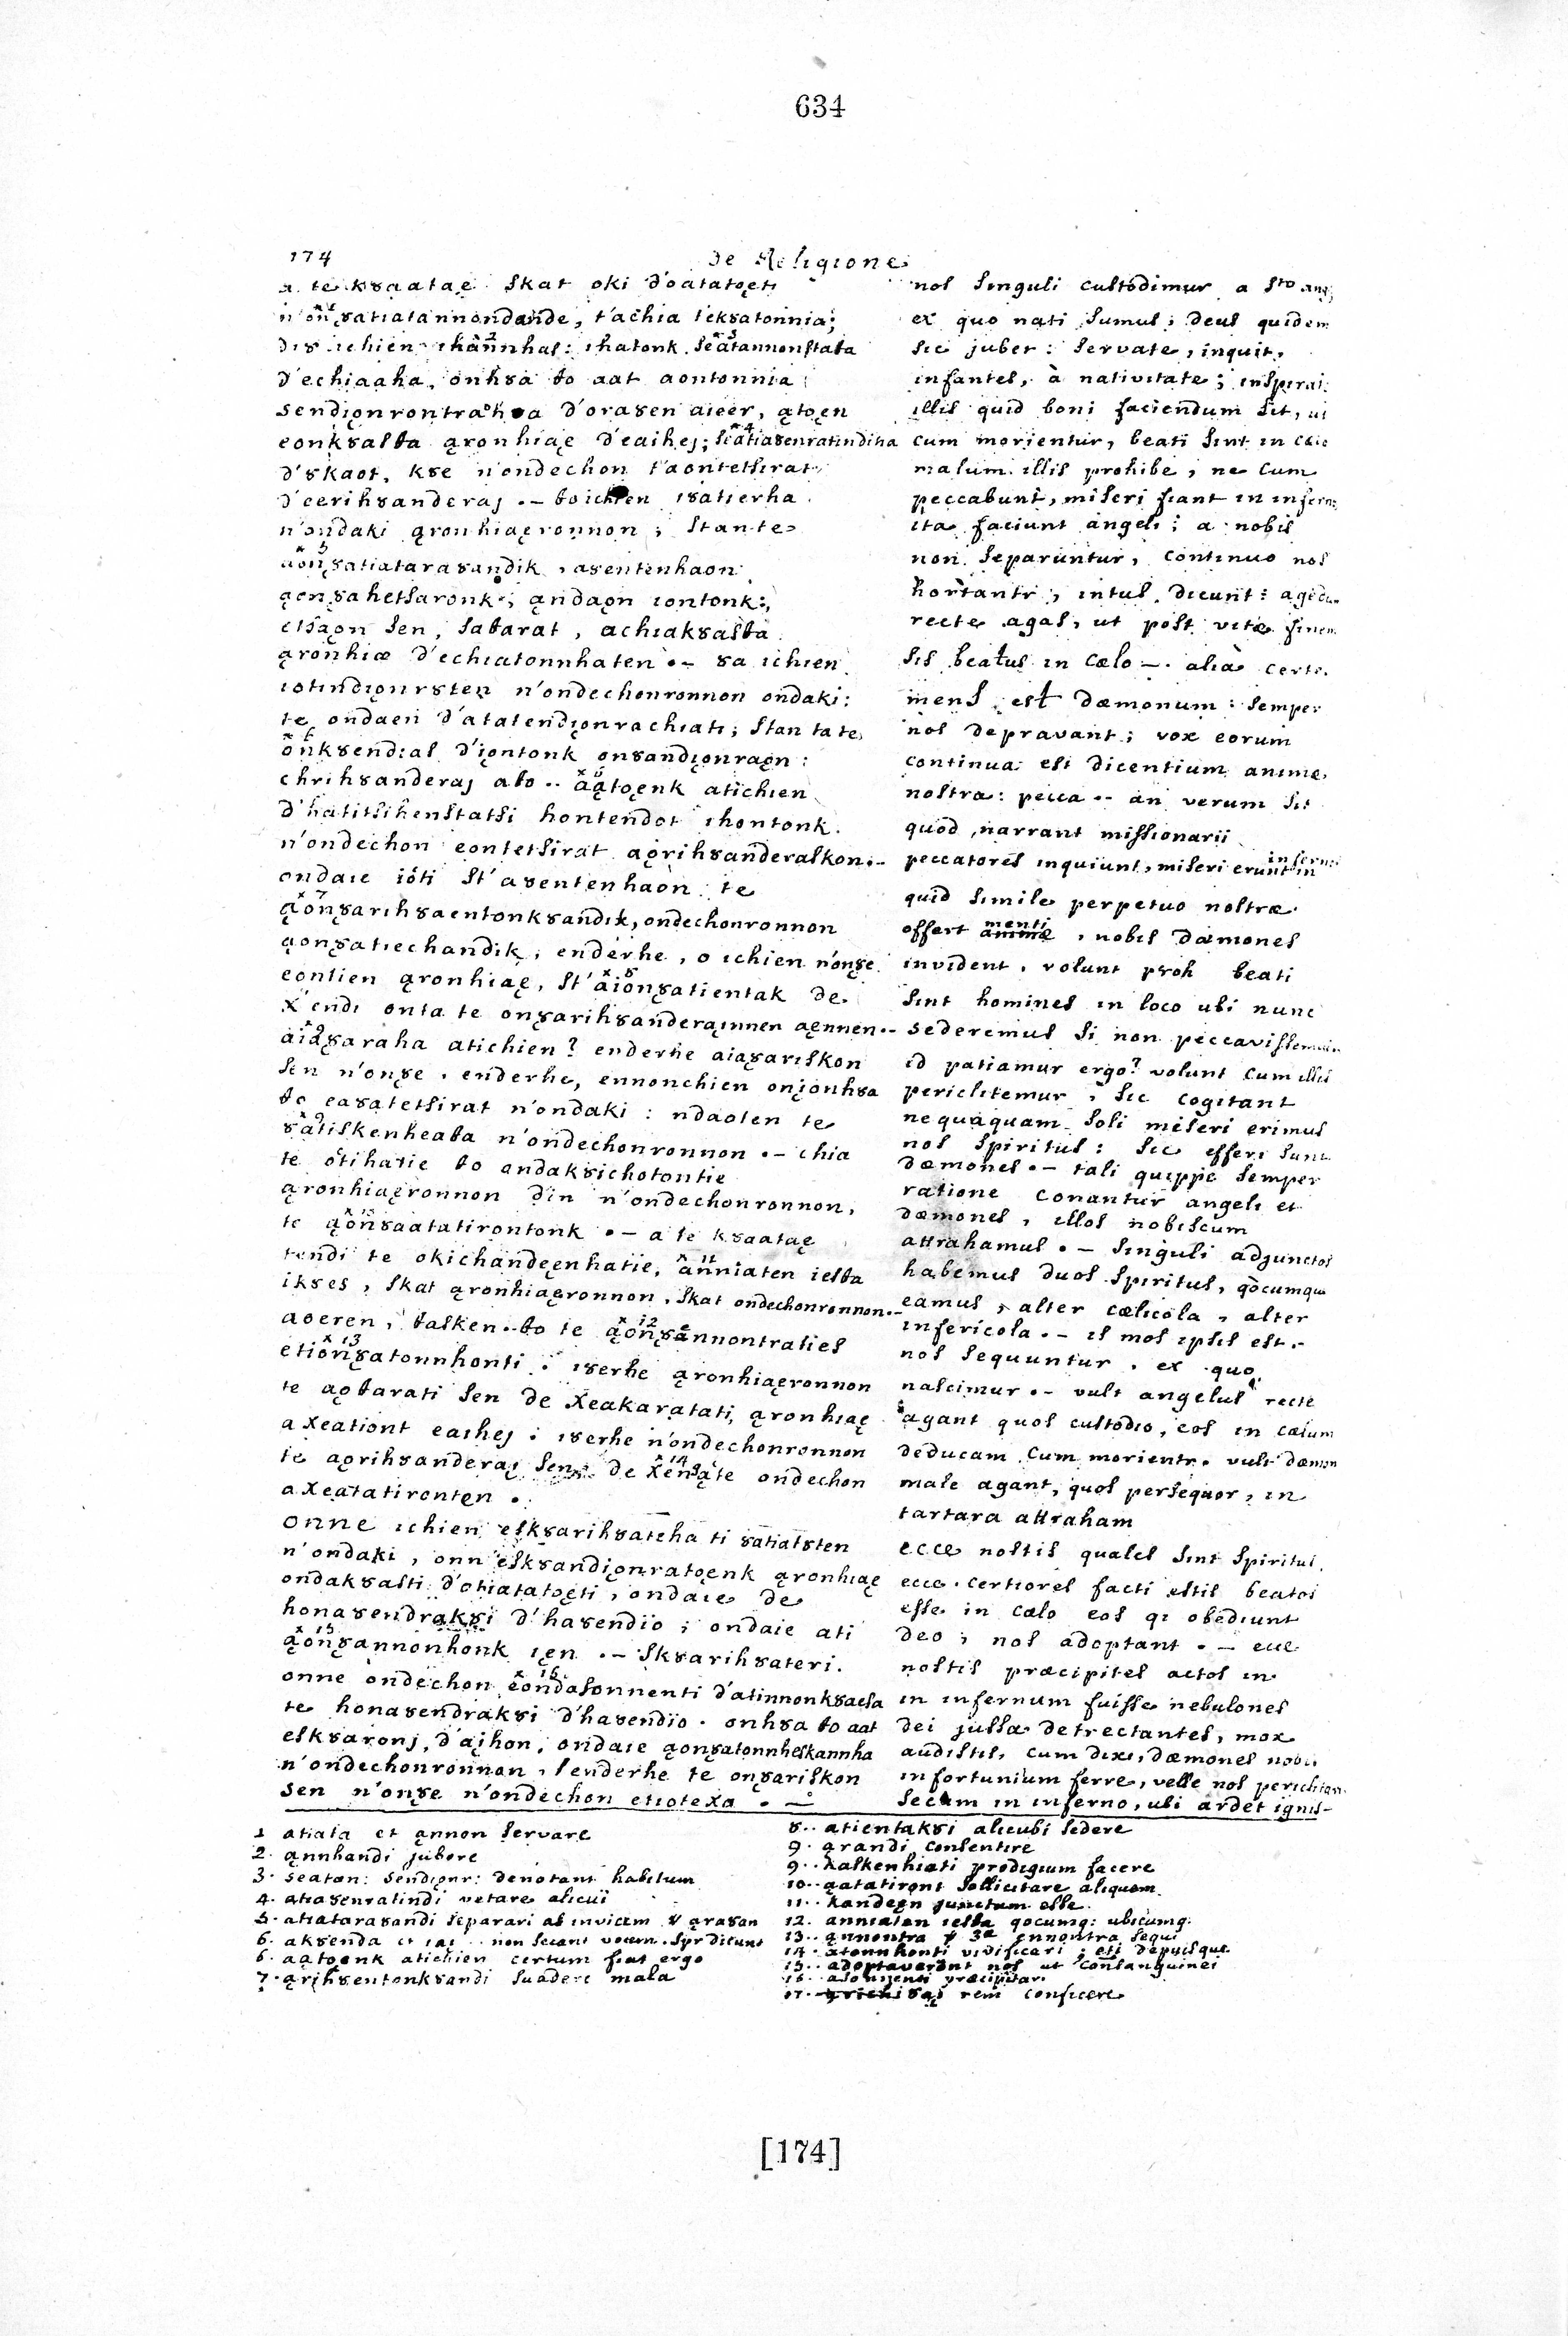 634
174 De Religione
a te kȣaataę skat oki d'oatatoęti
n'onȣatiatannondande, t'achia teksatonnia;
diȣ ichien ihannhas: ihatonk seatannonstaƀa
d'echiaaha, onhȣa ƀo aat aontonnia
sendiǫnrontra d'oraȣen aieer, ątoęn
eonkȣasƀa ąronhiaę d'eaihej; seatiaȣenratindiha
d'ȣkaot, kȣe n'ondechon t'aontetsirat
d'eerihȣanderaj .– ƀo ichien iȣatierha
n'ondaki ąronhiaęronnon ; stante
aonȣatiataraȣandik , aȣentenhaon
ąonȣahetsaronk ; ąndaǫn iontonk:,
etsaǫn sen, saƀarat, achiakȣasƀa
ąronhiæ d'echiatonnhaten .– ȣa ichien
iotindiǫnrȣten n'ondechonronnon ondaki:
te ondaen d'atatendiǫnrachiati; stan ta te
onkȣendias d'iǫntonk onȣandiǫnraǫn :
chrihȣanderaj aƀo .. aątoęnk atichien
d'hatitsihenstatsi hontendot ihontonk.
n'ondechon eontetsirat aǫrihȣanderaskon.–
ondaie ioti st'aȣentenhaon te
ąonȣarihȣaentonkȣandik, ondechonronnon
ąonȣatiechandik, enderhe, o ichien n'onȣe
eontien ąronhiaę, st'aionȣatientak de
x'endi onta te onȣarihȣanderaįnnen aęnnen.–
aiaȣaraha atichien? enderhe aiaȣariskon
sen n'onȣe , enderhe, ennonchien oniǫnhȣa
ƀo eaȣatetsirat n'ondaki : ndaoten te
ȣatiskenheaƀa n'ondechonronnon .– chia
te otihatie ƀo andakȣichotontie
ąronhiaęronnon din n'ondechonronnon,
te ąonȣaatatirontonk .– a te kȣaataę
tendi te okichandeęnhatie, anniaten iesƀa
ikȣes, skat ąronhiaęronnon, skat ondechonronnon.–
aoeren, ƀasken .. ƀo te ąonȣannontraties
etionȣatonnhonti : iȣerhe ąronhiaęronnon
te aǫƀarati sen de xeakaratati, ąronhiaę
axeationt eaihej : iȣerhe n'ondechonronnon
te aǫrihȣanderaį sen de xenȣąte ondechon
axeatatironten .
onne ichien eskȣarihȣateha ti ȣatiatȣten
n'ondaki, onn'eskȣandiǫnratoęnk ąronhiaę
ondakȣasti d'otiatatoęti, ondaie de
honaȣendrakȣi d'haȣendio ; ondaie ati
ąonȣannonhonk ięn .– skȣarihȣateri.
onne ondechon eondasonnenti d'atinnonkȣaesa
te honaȣendrakȣi d'haȣendio . onhȣa ƀo aat
eskȣaronj, d'aįhon, ondaie ąonȣatonnheskannha
n'ondechonronnon, senderhe te onȣariskon
sen n'onȣe n'ondechon etiotexa . –
nos singuli custodimur a sto ang;
ex quo nati sumus; deus quidem
sic jubet : servate, inquit,
infantes, à nativitate; inspirat
illis quid boni faciendum sit, ut
cum morientur, beati sint in cælo
malum illis prohibe, ne cum
peccabunt, miseri fiant in inferno
ita faciunt angeli; a nobis
non separantur, continuo nos
hortantr, intus dicunt: agedum
recte agas, ut post vitæ finem
sis beatus in cælo –. alia certe
mens est dæmonum : semper
nos depravant; vox eorum
continua est dicentium animæ
nostræ: pecca .. an verum sit
quod narrant missionarii
peccatores inquiunt, miseri erunt in inferno
quid simile perpetuo nostræ
offert menti , nobis dæmones
invident, volunt proh beati
sint homines in loco ubi nunc
sederemus si non peccavissemus
id patiamur ergo? volunt cum illis
periclitemur , sic cogitant
nequaquam soli miseri erimus
nos spiritus : sic efferi sunt
dæmones .– tali quippe semper
ratione conantur angeli et
dæmones, illos nobiscum
attrahamus .– singuli adjunctos
habemus duos spiritus, qòcumque
eamus, alter cælicola, alter
infericola .– is mos ipsis est.–
nos sequuntur, ex quo
nascimur .– vult angelus recte
agant quos custodio, eos in cælum
deducam cum morientr. vult dæmon
male agant, quos persequor, in
tartara attraham
ecce nostis quales sint spiritus,
ecce certiores facti estis beatos
esse in cælo eos qi obediunt
deo ; nos adoptant .– ecce
nostis præcipites actos in
in infernum fuisse nebulones
dei jussa detrectantes, mox
audistis, cum dixi, dæmones nobis
infortunium ferre, velle nos periclitari
secum in inferno, ubi ardet ignis–
1 atiata et ąnnon servare
2. ąnnhandi jubere
3. seatan: sendiǫnr: denotant habitum
4. atiaȣenratindi vetare alicui
5. atiataraȣandi separari ab invicem ȣ ąraȣan
6. akȣenda et ias .. non secant vocem. spr dicunt
6. aątoęnk atichien certum fiat ergo
7. ąrihȣentonkȣandi suadere mala
8.. atientakȣi alicubi sedere
9. ąrandi consentire
9.. kaskenhiati prodigium facere
10.. ąatatiront sollicitare aliquem
11.. kandeęn junctum esse
12. anniaten iesƀa qocumq: ubicumq:
13.. ąnnontra p 3æ ennontra sequi
14. atonnhonti vivificari ; eti depuisque
15.. adoptaverunt nos ut consanguinei
16.. asonnenti præcipitari
17. ȣaį rem conficere
[174]